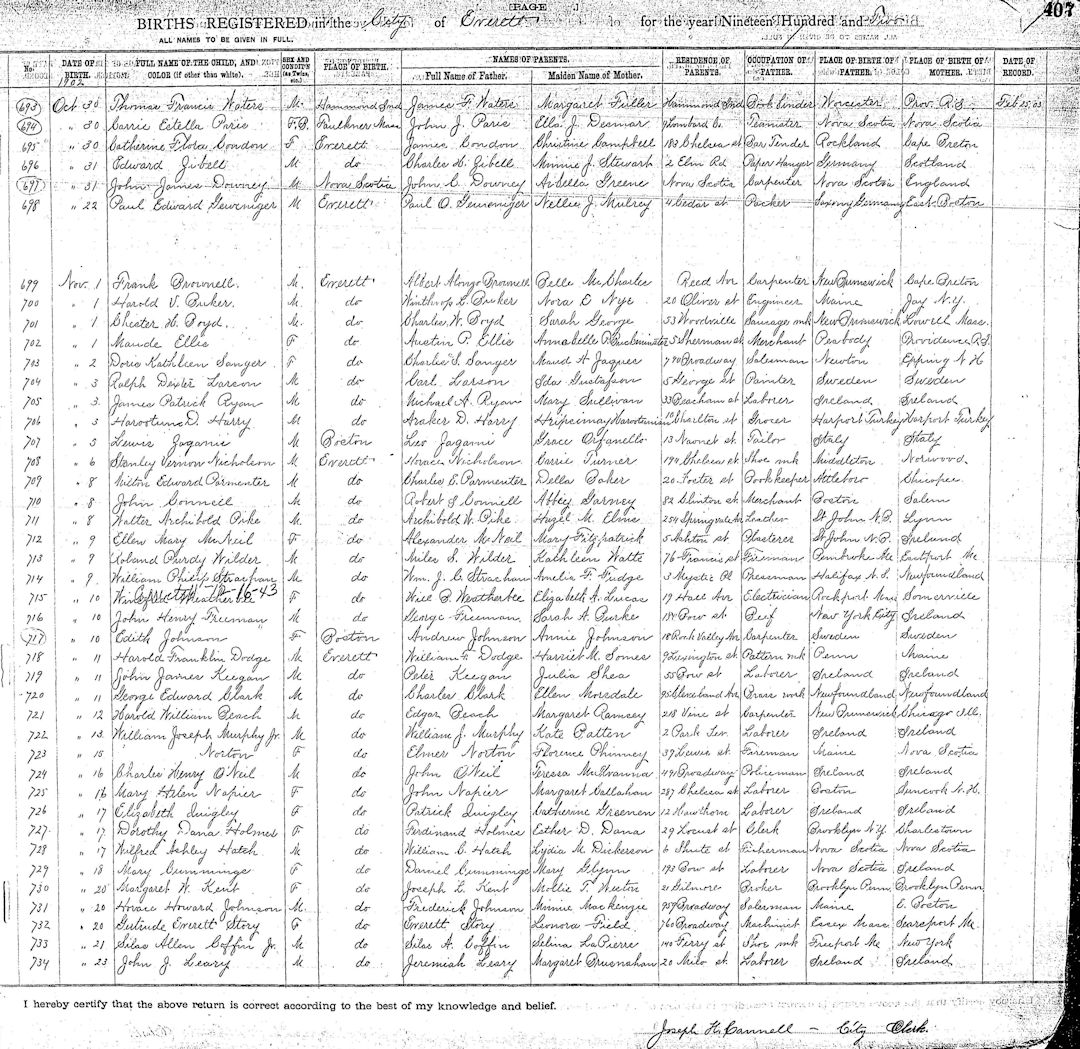 PAGE
407
BIRTHS REGISTERED in the City of Everett for the year Nineteen Hundred and Two
ALL NAMES TO BE GIVEN IN FULL.
No. DATE OF BIRTH. FULL NAME OF THE CHILD, AND COLOR (if other than white). SEX AND CONDIT'N (as Twins, etc.) PLACE OF BIRTH. NAMES OF PARENTS. Full Name of Father. Maiden Name of Mother. RESIDENCE OF PARENTS. OCCUPATION OF FATHER. PLACE OF BIRTH OF FATHER. PLACE OF BIRTH OF MOTHER. DATE OF RECORD.
1902
693 Oct 30 Thomas Francis Waters M. Hammond Ind James F. Waters Margaret Fuller Hammond Ind Book binder Worcester Prov. R.I. Feb 25, 03
694 " 30 Carrie Estella Paris Faulkner Mass John J. Paris Ella J. Desmar 9 Lombard Teamster Nova Scotia Nova Scotia
695 " 30 Catherine Flora Condon F Everett James Condon Christine Campbell 183 Chelsea st Bar Tender Rockland Cape Breton
696 " 31 Edward Zibell M do Charles H. Zibell Minnie J. Stewart 2 Elm Rd Paper Hanger Germany Scotland
697 " 31 John James Downey M Nova Scotia John C. Downey Arbella Greene Nova Scotia Carpenter Nova Scotia England
698 " 22 Paul Edward Geweniger M Everett Paul O. Geweniger Nellie J. Mulrey 4 Cedar st Packer Saxony Germany East Boston
699 Nov. 1 Frank Brownell M. Everett Albert Alonzo Brownell Belle McCharles Reed Ave Carpenter New Brunswick Cape Breton
700 " 1 Harold V. Buker M. do Winthrop L. Buker Nora E Nye 20 Oliver st Engineer Maine Jay N.Y.
701 " 1 Chester H. Boyd M. do Charles W. Boyd Sarah George 53 Woodville Sausage mk New Brunswick Lowell Mass.
702 " 1 Maude Ellis F do Austin P. Ellis Annabelle P. Buckminster 5 Sherman st Merchant Peabody Providence R.I.
703 " 2 Doris Kathleen Sanger F do Charlie S. Sanger Maud A Jaques 790 Broadway Salesman Newton Epping N.H
704 " 3 Ralph Dexter Larson M do Carl Larson Ida Gustafson 5 George st Painter Sweden Sweden
705 " 3 James Patrick Ryan M do Michael A. Ryan Mary Sullivan 33 Beacham st Laborer Ireland Ireland
706 " 3 Harootune D. Harry M do Araker D. Harry Hripsimay Harootunian 10 Charlton st Grocer Harport Turkey Harport Turkey
707 " 5 Lewis Jagami M Boston Leo Jagami Grace Orfanello 13 Navonet st. Tailor Italy Italy
708 " 6 Stanley Vernon Nicholson M Everett Horace Nicholson Carrie Turner 194 Chelsea st Shoe mk Middleton Norwood
709 " 8 Milton Edward Parmenter M do Charles E. Parmenter Della Baker 20 Foster st Bookkeeper Attleboro Chicopee
710 " 8 John Connell M do Robert S. Connell Abbey Garney 82 Clinton st Merchant Boston Salem
711 " 8 Walter Archibold Pike M do Archibold W. Pike Hazel M. Elms 254 Springvale Ave Leather St John N.B. Lynn
712 " 9 Ellen Mary McNeil F do Alexander McNeil Mary Fitzpatrick 5 Ashton st Plasterer St John N.B. Ireland
713 " 9 Roland Purdy Wilder M do Miles S. Wilder Kathleen Watts 76 Francis st Fireman Pembroke Me Eastport Me
714 " 9 William Philip Strachan M do Wm. J. C. Strachan Amelia F. Tudge 3 Mystic Pl Pressman Halifax N.S. Newfoundland
715 " 10 Weatherbee F do Will B. Weatherbee Elizabeth A. Lucas 19 Hall Ave Electrician Rockport Mass Somerville
716 " 10 John Henry Freeman M do George Freeman Sarah A. Burke 184 Bow st Beef New York City Ireland
717 " 10 Edith Johnson F Boston Andrew Johnson Annie Johnson 18 Rock Valley Ave Carpenter Sweden Sweden
718 " 11 Harold Franklin Dodge M Everett William F. Dodge Harriet M. Somes 9 Lexington st Pattern mk Penn Maine
719 " 11 John James Keegan M do Peter Keegan Julia Shea 55 Bow st Laborer Ireland Ireland
720 " 11 George Edward Clark M do Charles Clark Ellen Moredale 95 Cleveland Ave Brass work Newfoundland Newfoundland
721 " 12 Harold William Beach M do Edgar Beach Margaret Ramsey 218 Vine st Carpenter New Brunswick Chicago Ill.
722 " 13 William Joseph Murphy Jr. M do William J. Murphy Kate Patten 2 Park Ter. Laborer Ireland Ireland
723 " 15 Norton F do Elmer Norton Florence Phinney 37 Lewis st. Fireman Maine Nova Scotia
724 " 16 Charles Henry O'Neil M do John O'Neil Teresa McIlvanna 491 Broadway Policeman Ireland Ireland
725 " 16 Mary Helen Napier F do John Napier Margaret Callahan 287 Chelsea st Laborer Boston Suncook N.H.
726 " 17 Elizabeth Quigley F do Patrick Quigley Catherine Greenen 12 Hawthorn Laborer Ireland Ireland
727 " 17 Dorothy Dana Holmes F do Ferdinand Holmes Esther D. Dana 29 Locust st Clerk Brooklyn N.Y. Charlestown
728 " 17 Wilfred Ashley Hatch M do William C. Hatch Lydia M. Dickerson 6 Shute st Fisherman Nova Scotia Nova Scotia
729 " 18 Mary Cummings F do Daniel Cummings Mary Glynn 193 Bow st Laborer Nova Scotia Ireland
730 " 20 Margaret W. Kent F do Joseph L. Kent Mollie T. Weston 21 Gilmore Broker Brooklyn Penn. Brooklyn Penn
731 " 20 Horace Howard Johnson M. do Frederick Johnson Minnie Mackenzie 959 Broadway Salesman Maine E. Boston
732 " 20 Gertrude Everett Story F do Everett Story Leonora Field 760 Broadway Machinist Essex Mass Searsport Me
733 " 21 Silas Allen Coffin Jr. M do Silas A. Coffin Selina LaPierre 140 Ferry st Shoe mk Freeport Me New York
734 " 23 John J. Leary M do Jeremiah Leary Margaret Brusnahan 20 Milo st Laborer Ireland Ireland
I hereby certify that the above return is correct according to the best of my knowledge and belief.
Joseph H. Cannell - City Clerk.